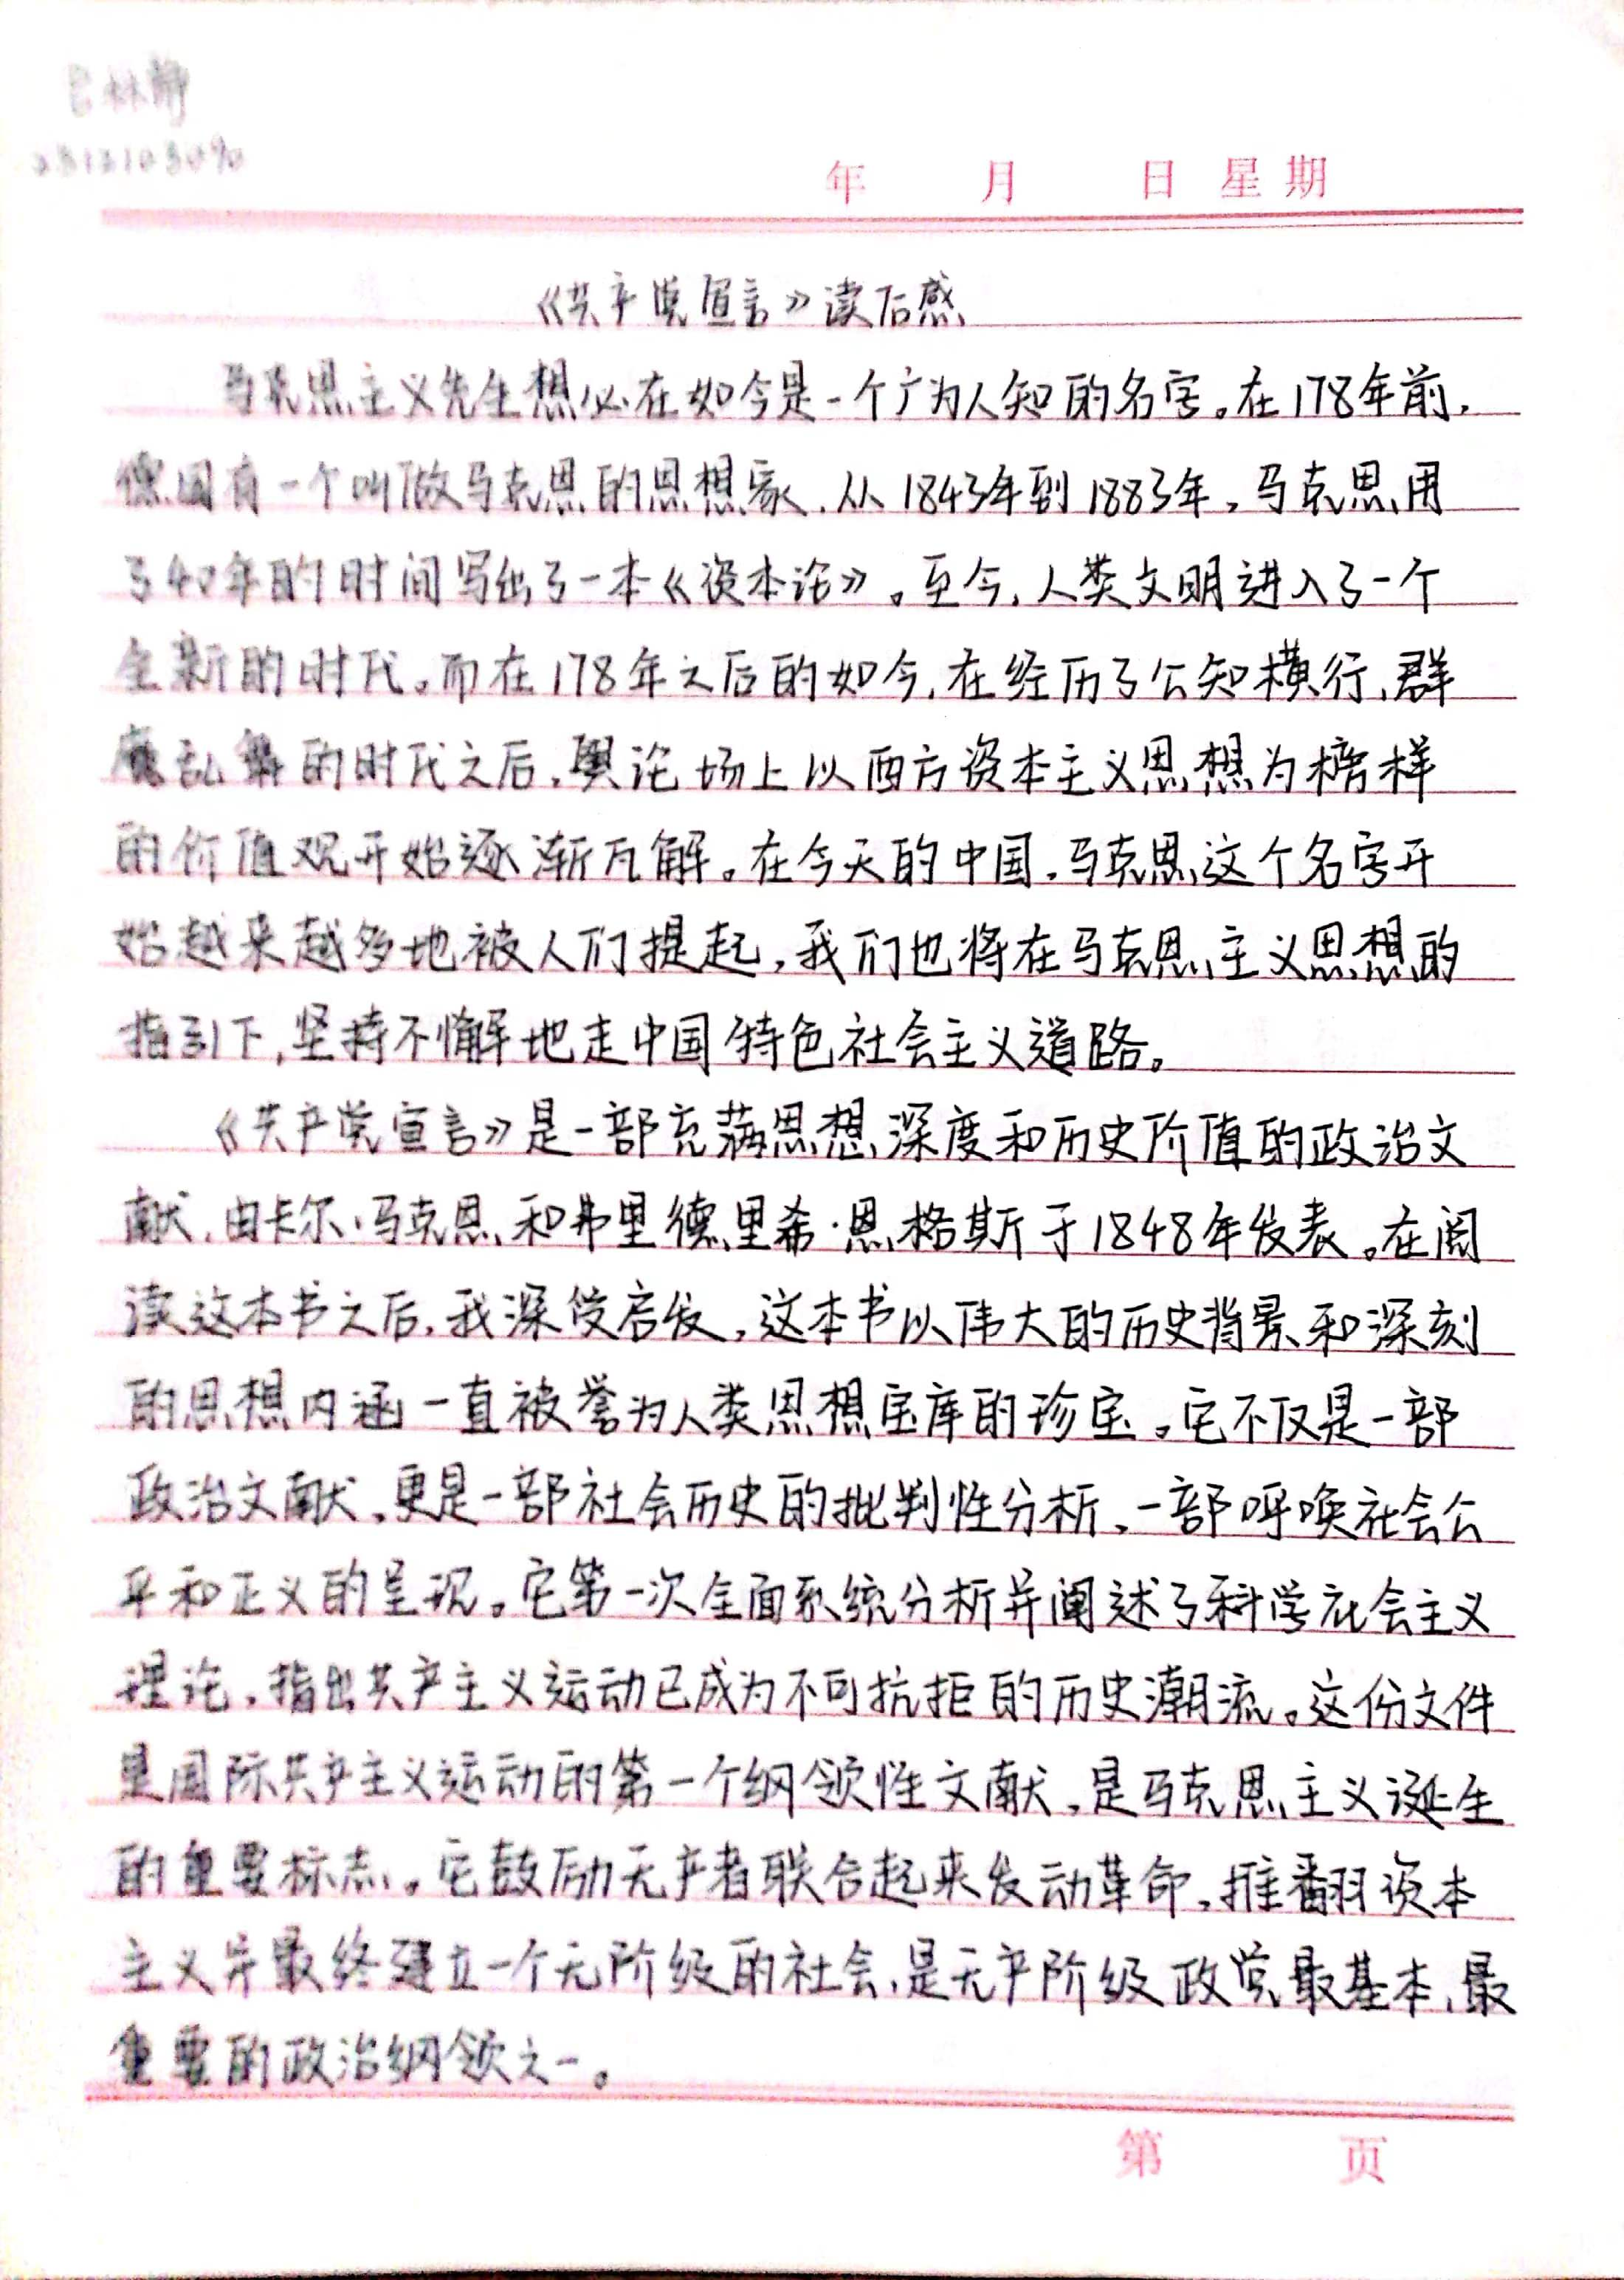 林静
2312103090
年 月 日 星期
《共产党宣言》读后感
马克思主义先生想必在如今是一个广为人知的名字。在178年前,
德国有一个叫做马克思的思想家,从1843年到1883年,马克思用
了40年的时间写出了一本《资本论》。至今,人类文明进入了一个
全新的时代。而在178年之后的如今,在经历了公知横行、群
魔乱舞的时代之后,舆论场上以西方资本主义思想为榜样
的价值观开始逐渐瓦解。在今天的中国,马克思这个名字开
始越来越多地被人们提起,我们也将在马克思主义思想的
指引下,坚持不懈地走中国特色社会主义道路。
《共产党宣言》是一部充满思想深度和历史价值的政治文
献,由卡尔·马克思和弗里德里希·恩格斯于1848年发表。在阅
读这本书之后,我深受启发,这本书以伟大的历史背景和深刻
的思想内涵一直被誉为人类思想宝库的珍宝。它不仅是一部
政治文献,更是一部社会历史的批判性分析,一部呼唤社会公
平和正义的呈现。它第一次全面系统分析并阐述了科学社会主义
理论,指出共产主义运动已成为不可抗拒的历史潮流。这份文件
是国际共产主义运动的第一个纲领性文献,是马克思主义诞生
的重要标志。它鼓励无产者联合起来发动革命,推翻资本
主义并最终建立一个无阶级的社会,是无产阶级政党最基本、最
重要的政治纲领之一。
第 页